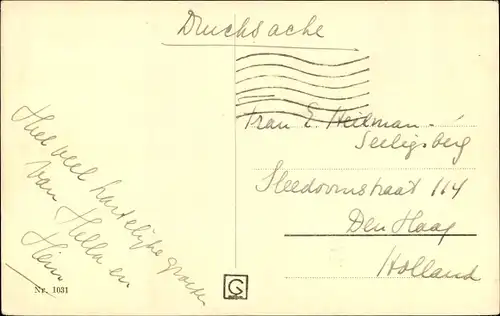 Drucksache
Frau E. Heilman-
Seeligsberg
114
Den Haag
Holland
Heel veel hartelijke groeten
van Hella en
Hein
Nr. 1031
G